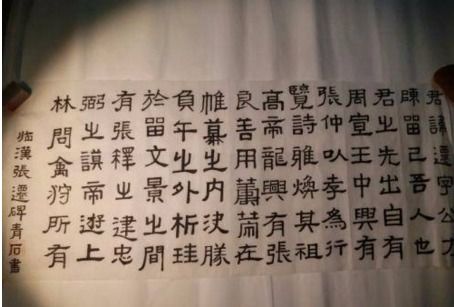 君諱遷字公方
陳留己吾人也
君之先出自有
周宣王中興有
張仲以孝為行
覽詩雅煥其祖
高帝龍興有張
良善用籌策在
帷幕之内決勝
負千之外析珪
於留文景之間
有張釋之建忠
弼之謨帝遊上
林問禽狩所有
临漢張遷碑青石書